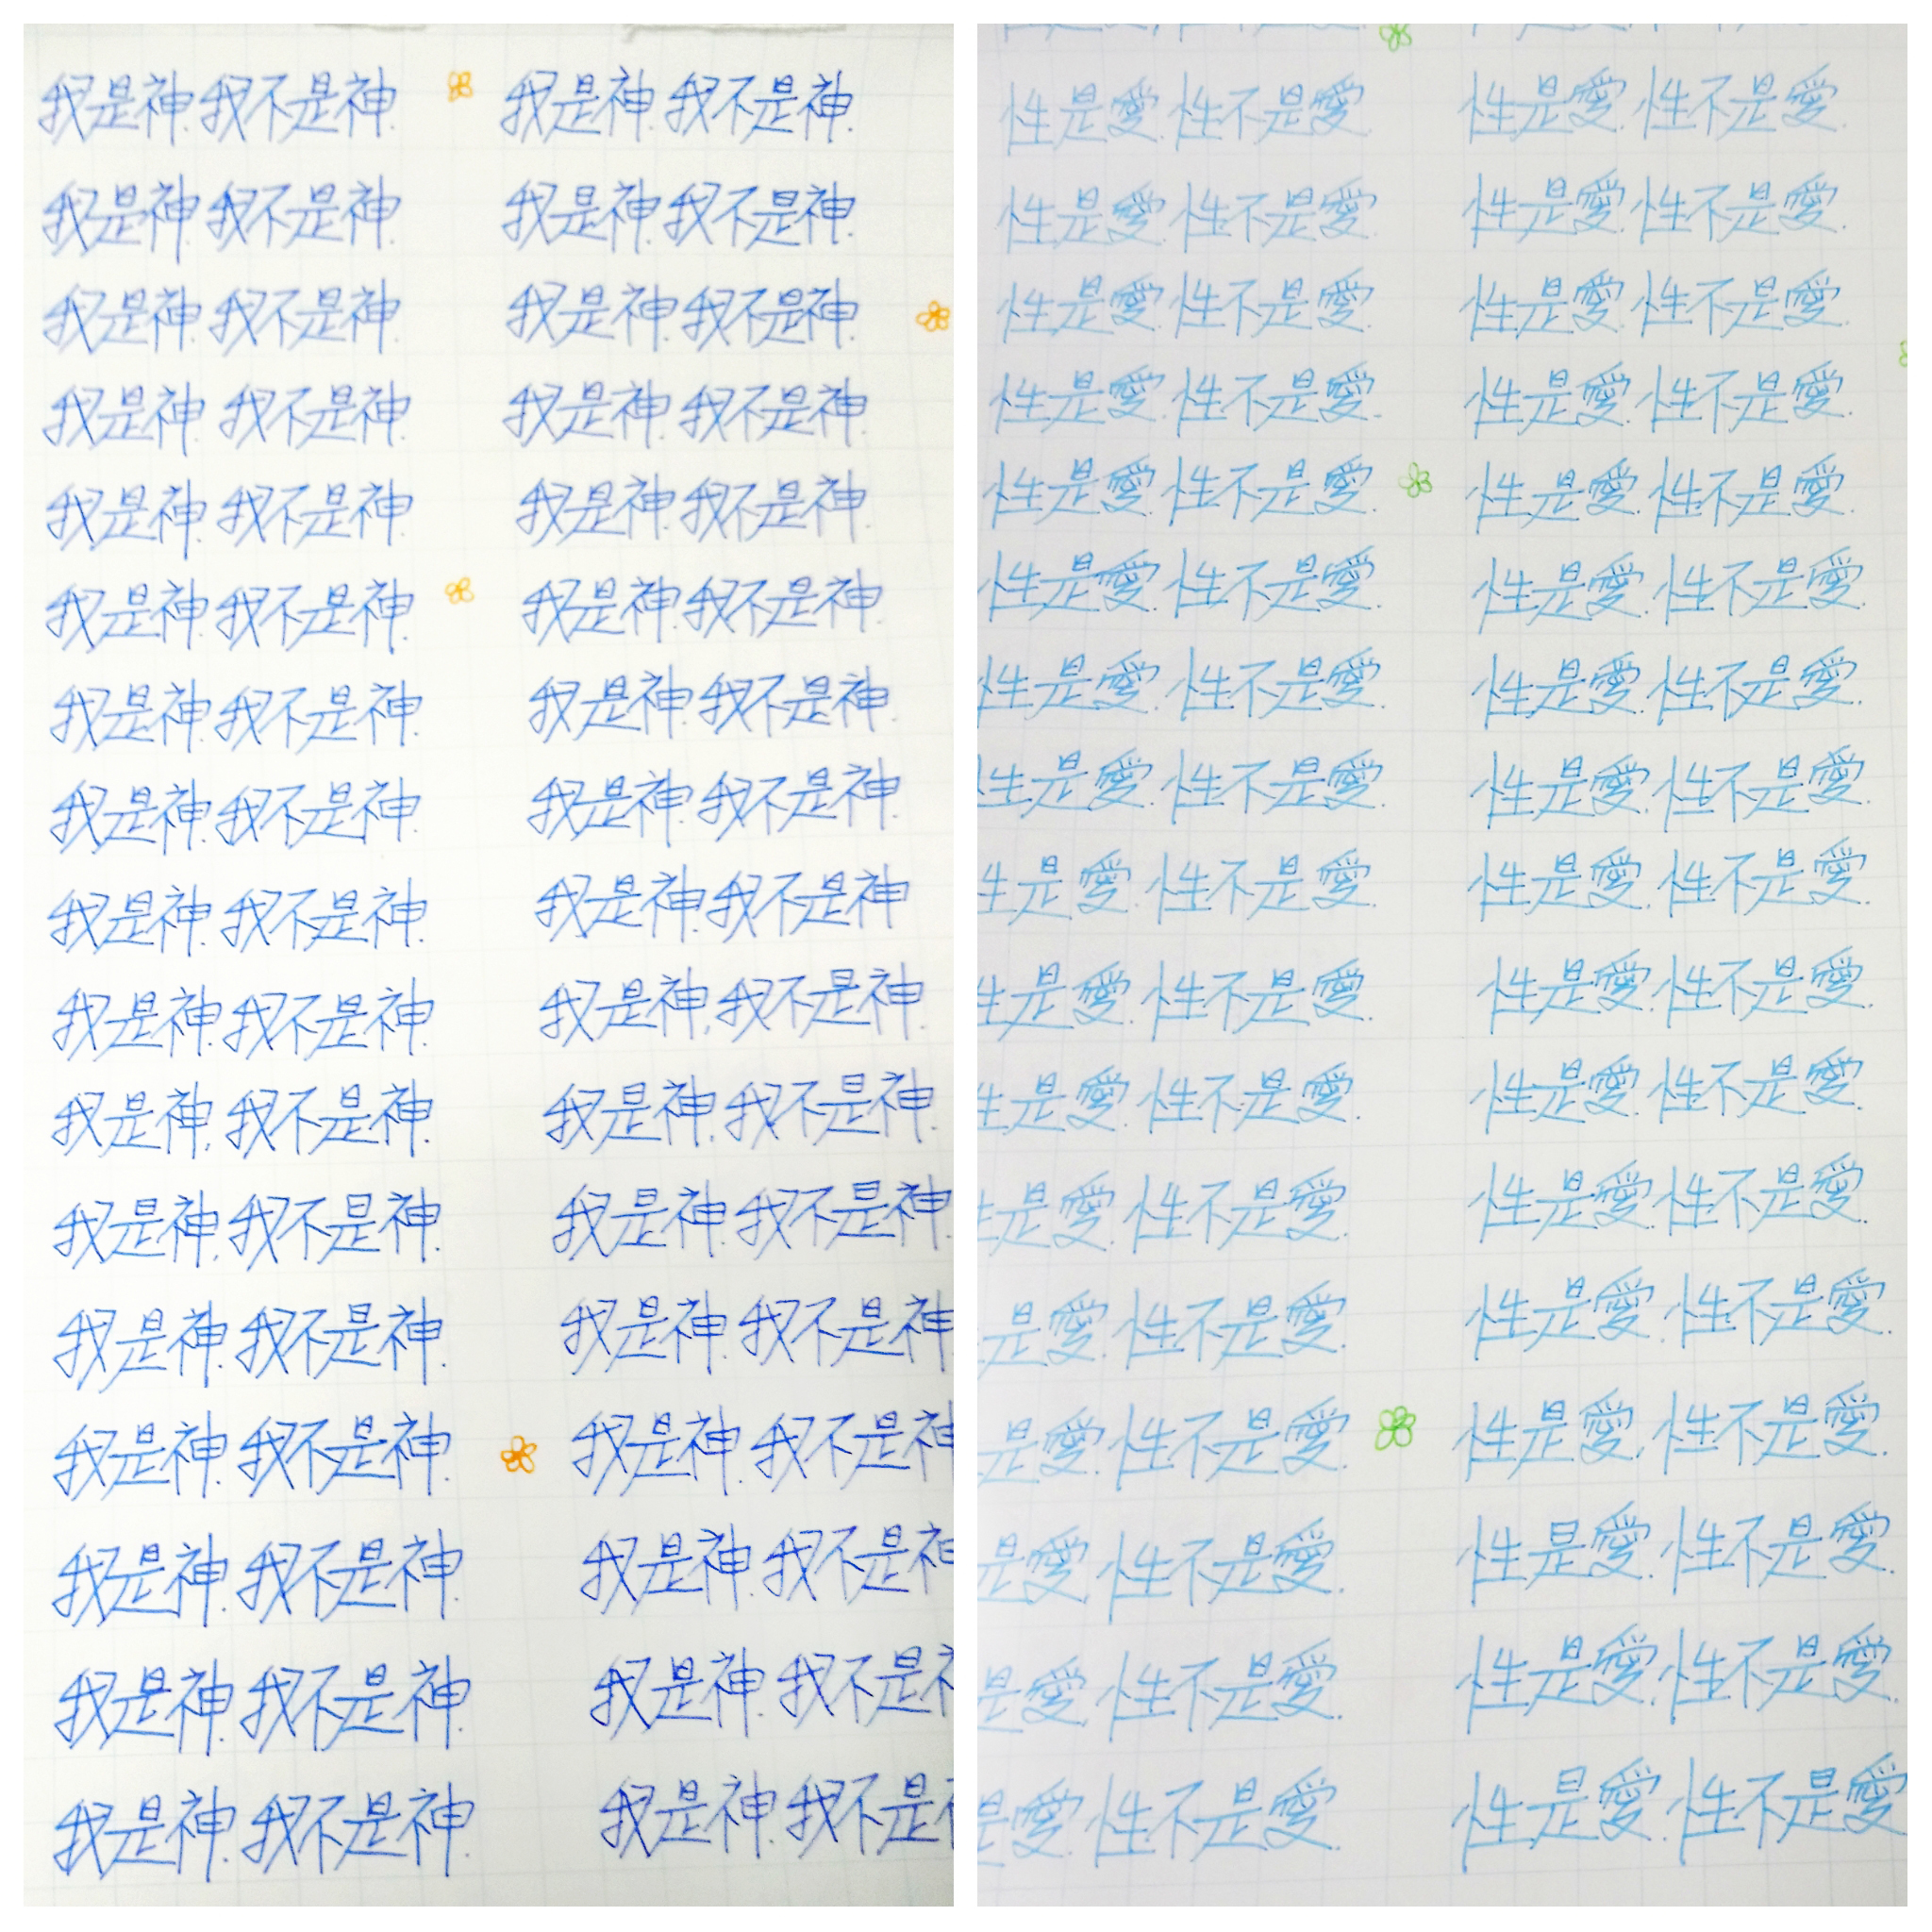 我是神.我不是神. 我是神.我不是神.
我是神.我不是神. 我是神.我不是神.
我是神.我不是神. 我是神.我不是神.
我是神.我不是神. 我是神.我不是神.
我是神.我不是神. 我是神.我不是神.
我是神.我不是神. 我是神.我不是神.
我是神.我不是神. 我是神.我不是神.
我是神.我不是神. 我是神.我不是神.
我是神.我不是神. 我是神.我不是神.
我是神.我不是神. 我是神.我不是神.
我是神.我不是神. 我是神.我不是神.
我是神.我不是神. 我是神.我不是神.
我是神.我不是神. 我是神.我不是神
我是神.我不是神. 我是神.我不是神
我是神.我不是神. 我是神.我不是
我是神.我不是神. 我是神.我不是
我是神.我不是神. 我是神.我不是
性是愛.性不是愛. 性是愛.性不是愛.
性是愛.性不是愛. 性是愛.性不是愛.
性是愛.性不是愛. 性是愛.性不是愛.
性是愛.性不是愛. 性是愛.性不是愛.
性是愛.性不是愛. 性是愛.性不是愛.
性是愛.性不是愛. 性是愛.性不是愛.
性是愛.性不是愛. 性是愛.性不是愛.
性是愛.性不是愛. 性是愛.性不是愛.
是愛.性不是愛. 性是愛.性不是愛.
是愛.性不是愛. 性是愛.性不是愛.
是愛.性不是愛. 性是愛.性不是愛.
是愛.性不是愛. 性是愛.性不是愛.
是愛.性不是愛. 性是愛.性不是愛.
是愛.性不是愛. 性是愛.性不是愛.
是愛.性不是愛. 性是愛.性不是愛.
是愛.性不是愛. 性是愛.性不是愛.
是愛.性不是愛. 性是愛.性不是愛